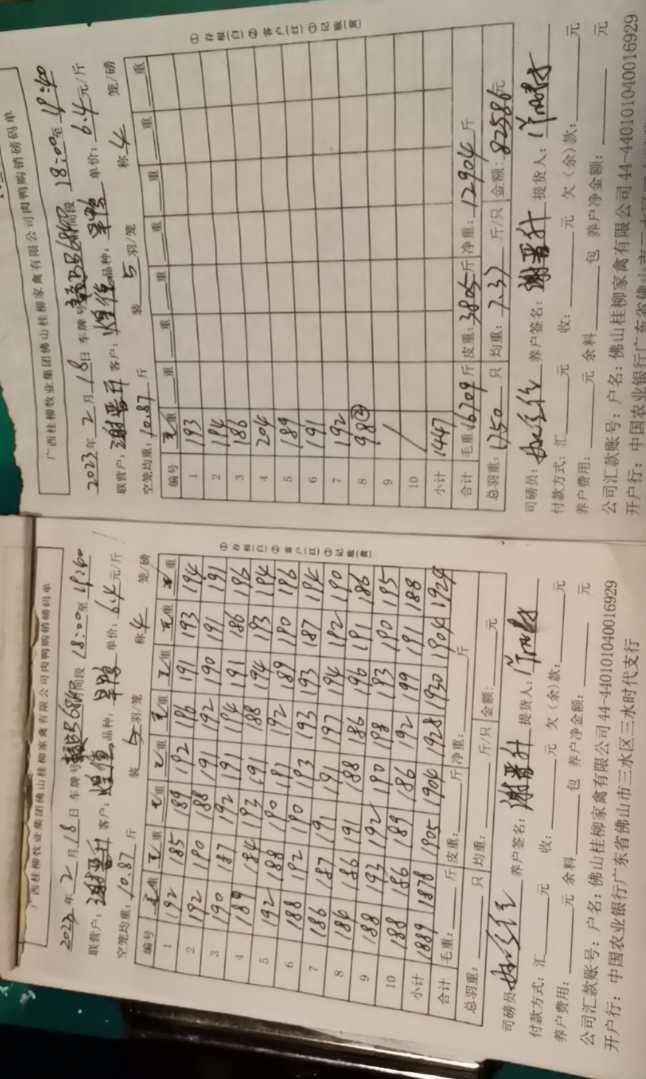 广西桂柳牧业集团佛山桂柳家禽有限公司肉鸭购销磅码单
2023年2月18日 车牌号 时间段 18:00至19:40
联营户：谢晋升 客户：煌信 品种：旱鸭 单价：6.4元/斤
空笼均重：10.87斤 装 5 羽/笼 称 4 笼/磅
编号 毛重 毛重 毛重 毛重 毛重 毛重 毛重 毛重
1 192 185 189 192 196 191 193 194
2 192 190 188 191 192 190 191 191
3 190 187 192 191 194 191 186 196
4 189 184 193 191 188 194 193 194
5 192 188 190 191 192 189 190 196
6 188 192 190 193 193 193 187 194
7 186 187 191 191 197 194 192 190
8 184 186 191 188 186 196 191 186
9 188 193 192 190 198 193 190 195
10 188 186 189 186 192 199 191 188
小计 1889 1878 1905 1904 1928 1930 1904 1924
合计 毛重： 斤 皮重： 斤 净重： 斤
总羽重： 只 均重： 斤/只 金额： 元
①存根(白)②客户(红)③记账(黄)
司磅员： 养户签名：谢晋升 提货人：
付款方式：汇 元 收： 元 欠（余）款： 元
养户费用： 元 余料 包 养户净金额： 元
公司汇款账号：户名：佛山桂柳家禽有限公司44-440101040016929
开户行：中国农业银行广东省佛山市三水区三水时代支行
广西桂柳牧业集团佛山桂柳家禽有限公司肉鸭购销磅码单
2023年2月18日 车牌号 时间段 18:00至19:40
联营户：谢晋升 客户：煌信 品种：旱鸭 单价：6.4元/斤
空笼均重：10.87斤 装 5 羽/笼 称 4 笼/磅
编号 毛重 重 重 重 重 重 重 重
1 193
2 194
3 186
4 204
5 189
6 191
7 192
8 98②
9 /
10
小计 1447
合计 毛重：16709斤 皮重：3805斤 净重：12904斤
总羽重：1750只 均重：7.37斤/只 金额：82586元
①存根(白)②客户(红)③记账(黄)
司磅员： 养户签名：谢晋升 提货人：
付款方式：汇 元 收： 元 欠（余）款： 元
养户费用： 元 余料 包 养户净金额： 元
公司汇款账号：户名：佛山桂柳家禽有限公司44-440101040016929
开户行：中国农业银行广东省佛山市三水区三水时代